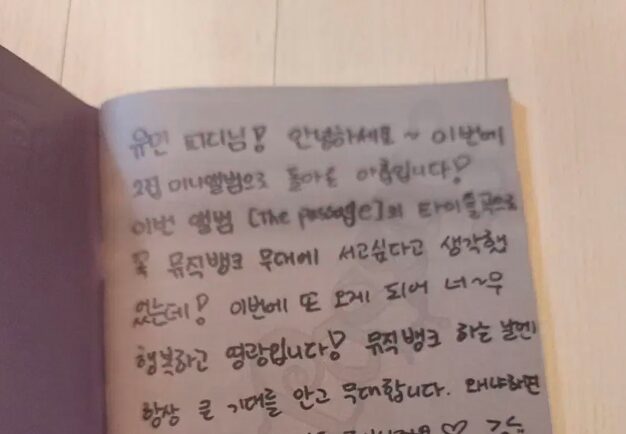 유민 피디님! 안녕하세요 ~ 이번에
2집 미니앨범으로 돌아온 아름입니다!
이번 앨범 [The passage]의 타이틀곡으로
꼭 뮤직뱅크 무대에 서고싶다고 생각했
었는데! 이번에 또 오게 되어 너~무
행복하고 영광입니다! 뮤직뱅크 하는 날엔
항상 큰 기대를 안고 무대합니다. 왜냐하면